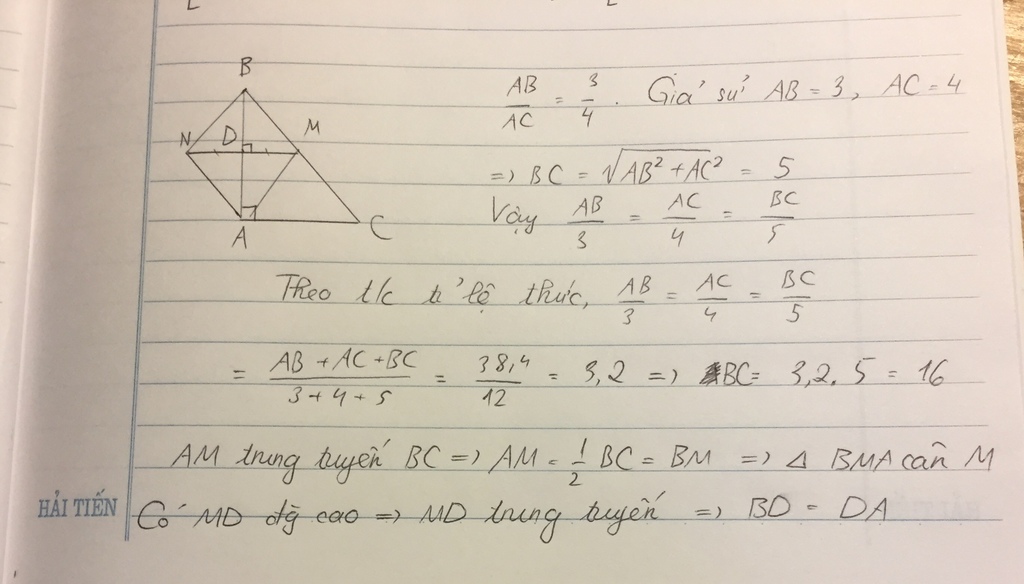 B
N D M
A C
AB/AC = 3/4 . Giả sử AB = 3, AC = 4
=> BC = √(AB² + AC²) = 5
Vậy AB/3 = AC/4 = BC/5
Theo t/c tỉ lệ thức, AB/3 = AC/4 = BC/5
= (AB + AC + BC)/(3 + 4 + 5) = 38,4/12 = 3,2 => BC = 3,2 . 5 = 16
AM trung tuyến BC => AM = 1/2 BC = BM => Δ BMA cân M
HẢI TIẾN
Có MD đg cao => MD trung tuyến => BD = DA